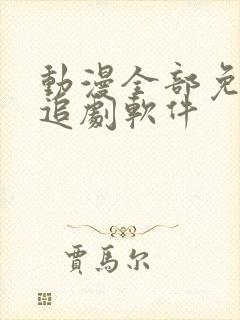 動漫全部免
追劇軟件
賈馬尔